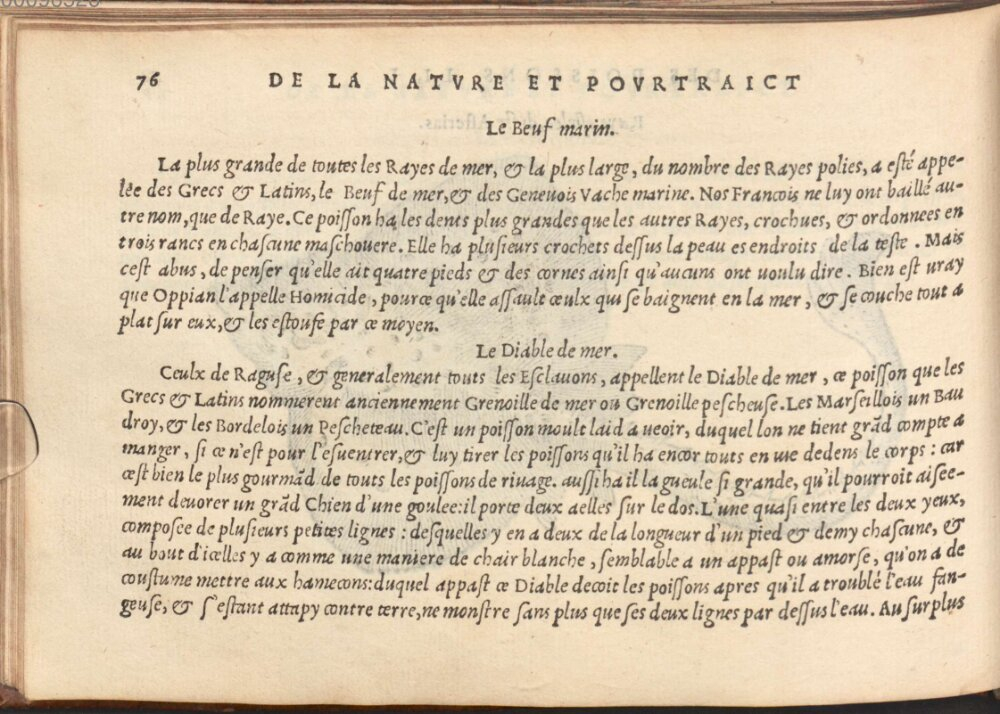 76 DE LA NATVRE ET POVRTRAICT
Le Beuf marin.
La plus grande de toutes les Rayes de mer, & la plus large, du nombre des Rayes polies, a esté appe-
lée des Grecs & Latins, le Beuf de mer, & des Genevois Vache marine. Nos Francois ne luy ont baillé au-
tre nom, que de Raye. Ce poisson ha les dents plus grandes que les autres Rayes, crochues, & ordonnees en
trois rancs en chascune maschouere. Elle ha plusieurs crochets dessus la peau es endroits de la teste. Mais
cest abus, de penser qu'elle ait quatre pieds & des cornes ainsi qu'aucuns ont voulu dire. Bien est vray
que Oppian l'appelle Homicide, pource qu'elle assault ceulx qui se baignent en la mer, & se couche tout a
plat sur eux, & les estoufe par ce moyen.
Le Diable de mer.
Ceulx de Raguse, & generalement touts les Esclauons, appellent le Diable de mer, ce poisson que les
Grecs & Latins nommerent anciennement Grenoille de mer ou Grenoille pescheuse. Les Marseillois un Bau
droy, & les Bordelois un Pescheteau. C'est un poisson moult laid a veoir, duquel lon ne tient grãd compte a
manger, si ce n'est pour l'esuentrer, & luy tirer les poissons qu'il ha encor touts en vie dedens le corps : car
cest bien le plus gourmãd de touts les poissons de riuage. aussi ha il la gueule si grande, qu'il pourroit aisee-
ment deuorer un grãd Chien d'une goulee: il porte deux aelles sur le dos. L'une quasi entre les deux yeux,
composee de plusieurs petites lignes : desquelles y en a deux de la longueur d'un pied & demy chascune, &
au bout d'icelles y a comme une maniere de chair blanche, semblable a un appast ou amorse, qu'on a de
coustume mettre aux hamecons: duquel appast ce Diable decoit les poissons apres qu'il a troublé l'eau fan-
geuse, & s'estant attapy contre terre, ne monstre sans plus que ses deux lignes par dessus l'eau. Au surplus